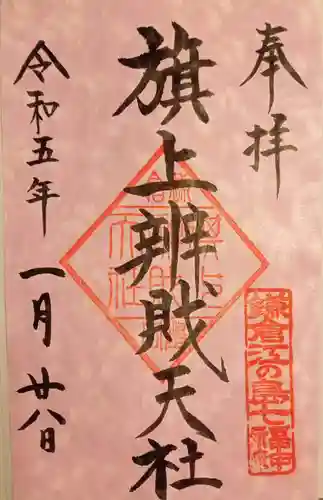 奉拝
旗上辨財天社
令和五年
一月廿八日
鎌倉江の島七福神